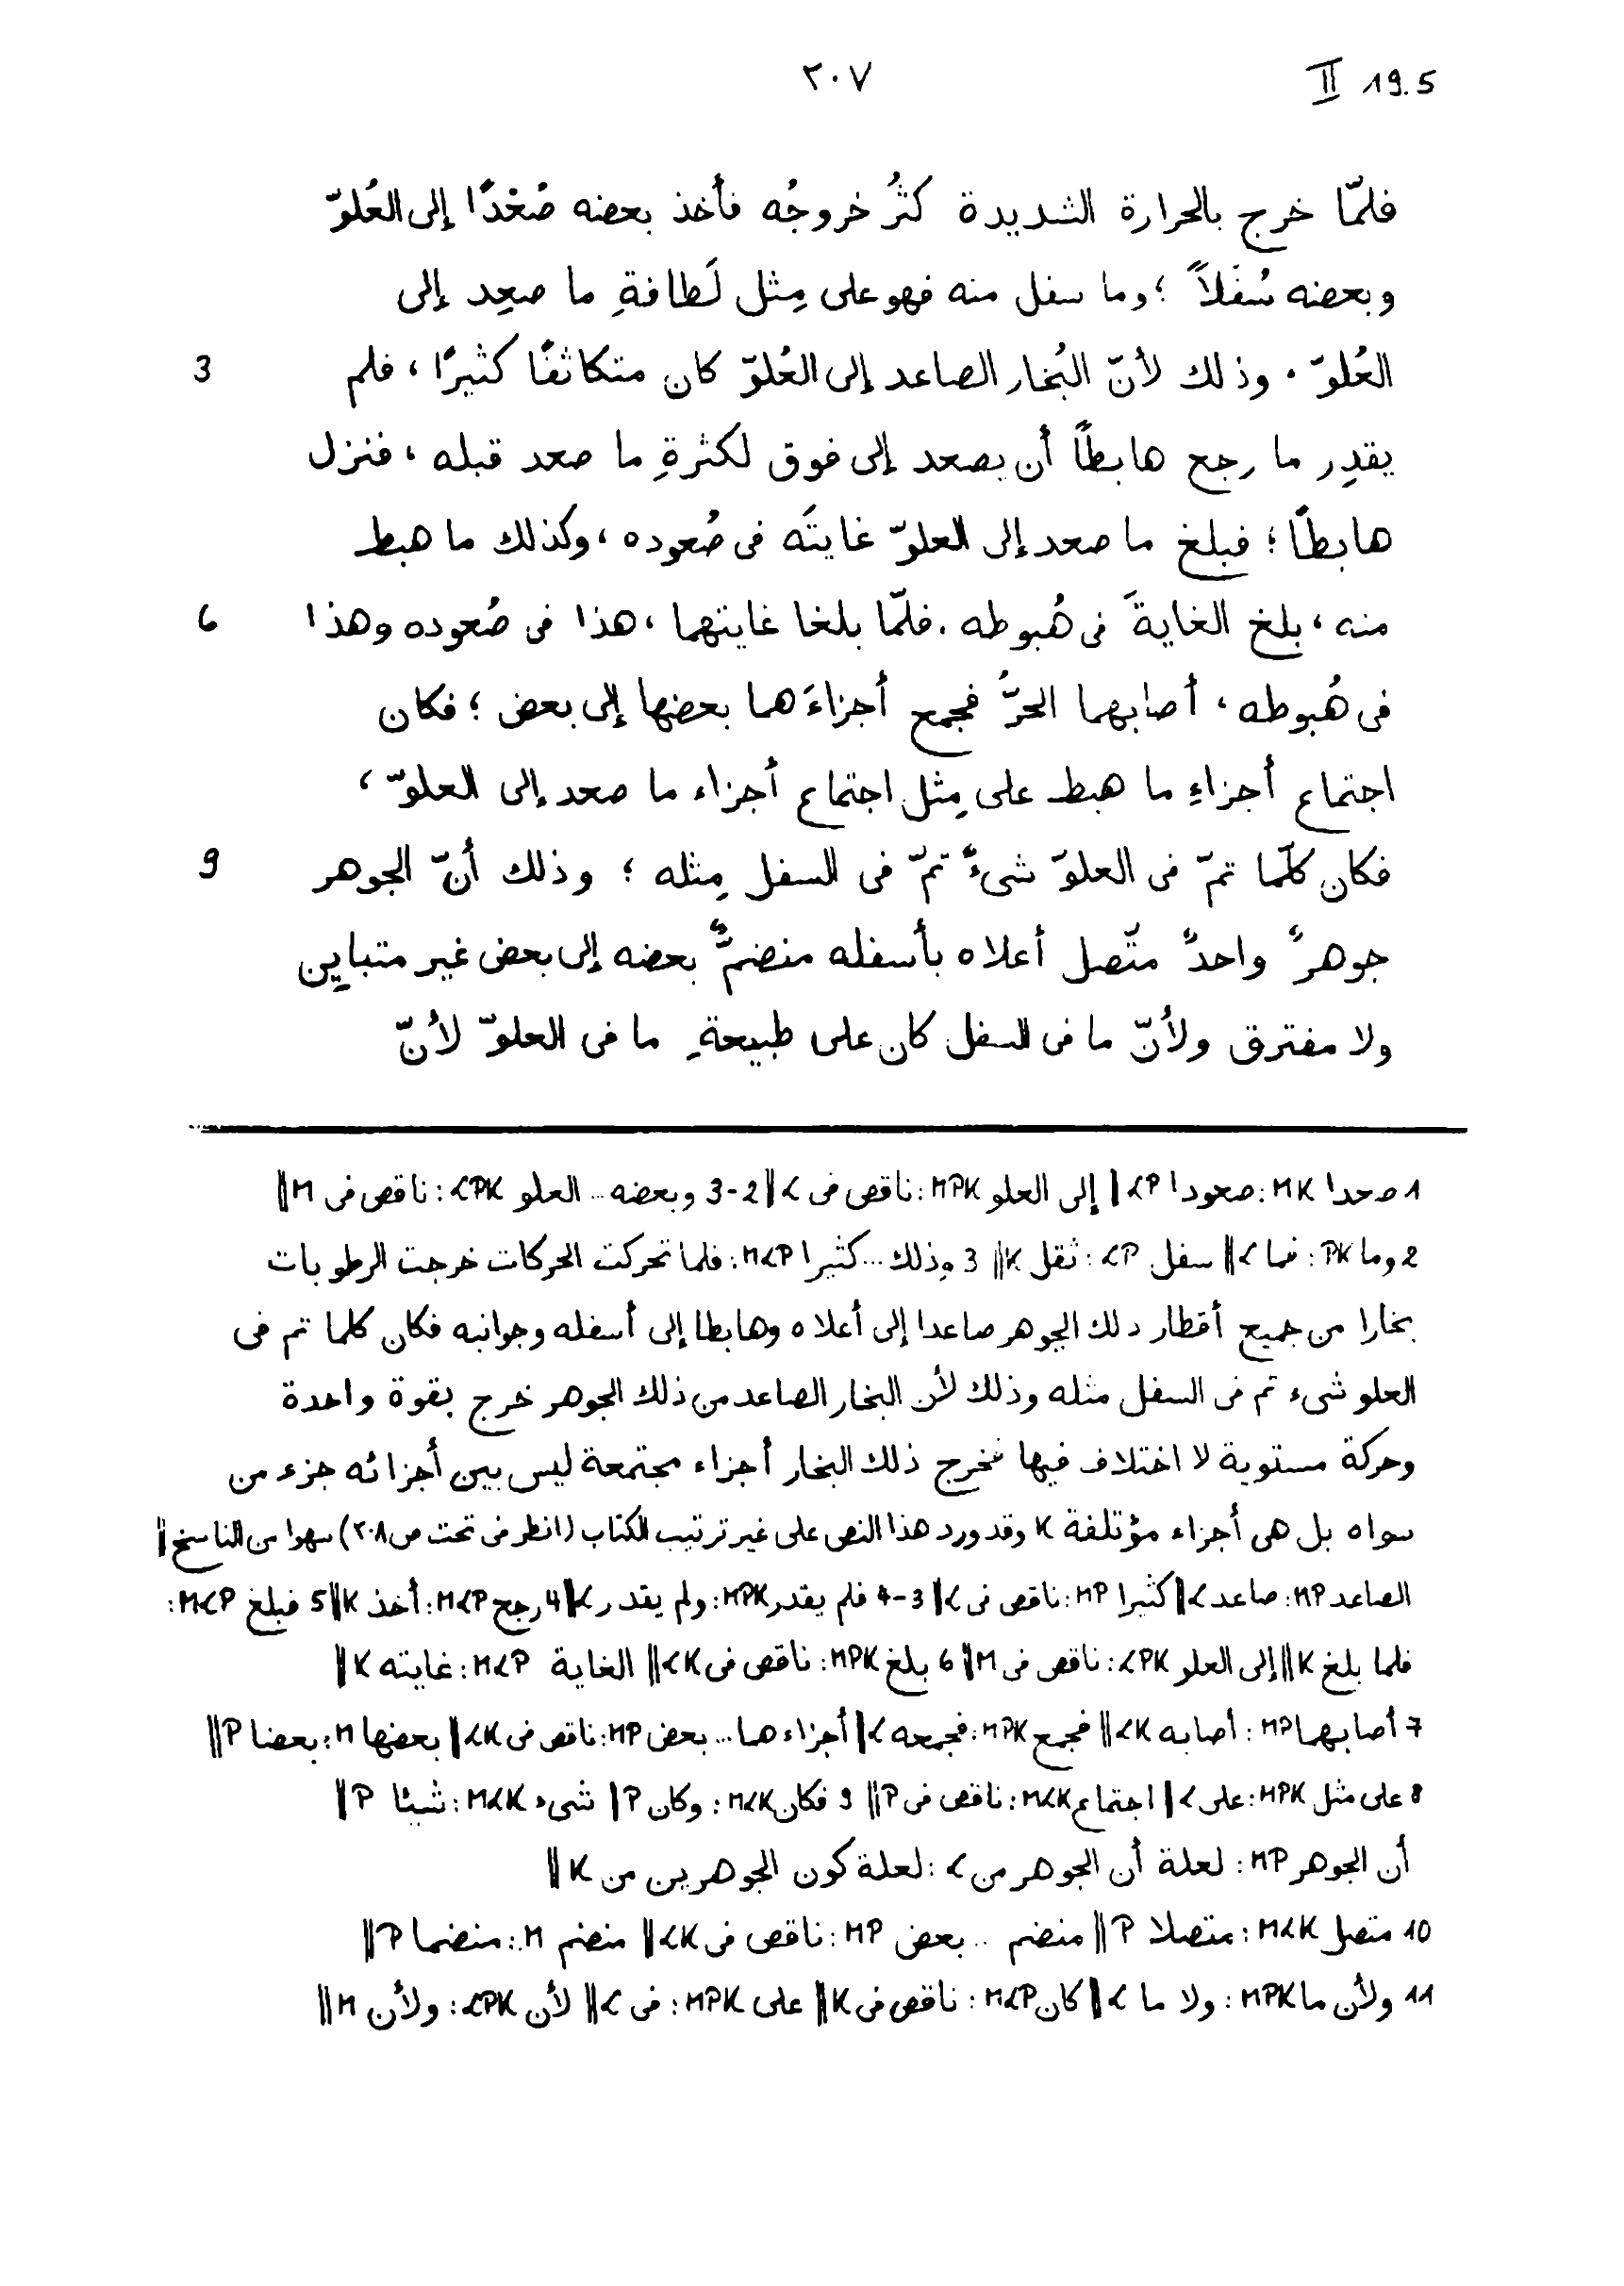 ٢٠٧ II 19.5
فلمّا خرج بالحرارة الشديدة كثُر خروجُه فأخذ بعضه صُعْدًا إلى العُلوّ
وبعضه سُفْلاً ؛ وما سفل منه فهو على مِثل لَطافةِ ما صعِد إلى
3 العُلوّ . وذلك لأنّ البُخار الصاعد إلى العُلوّ كان متكاثفًا كثيرًا ، فلم
يقدِر ما رجع هابطًا أن يصعد إلى فوق لكثرةِ ما صعد قبله ، فنزل
هابطًا ؛ فبلغ ما صعد إلى العلوّ غايتَه فى صُعوده ، وكذلك ما هبط
6 منه ، بلغ الغايةَ فى هُبوطه . فلمّا بلغا غايتهما ، هذا فى صُعوده وهذا
فى هُبوطه ، أصابهما الحرُّ فجمع أجزاءَهما بعضها إلى بعض ؛ فكان
اجتماع أجزاءِ ما هبط على مِثل اجتماع أجزاء ما صعد إلى العلوّ ،
9 فكان كلّما تمّ فى العلوّ شىءٌ تمّ فى السفل مِثله ؛ وذلك أنّ الجوهر
جوهرٌ واحدٌ متّصل أعلاه بأسفله منضمٌّ بعضه إلى بعض غير متبايِن
ولا مفترق ولأنّ ما فى السفل كان على طبيعةِ ما فى العلوّ لأنّ
1 صعدا MK : صعودا LP || إلى العلو MPK : ناقص فى L || 2-3 وبعضه ... العلو LPK : ناقص فى M ||
2 وما PK : فما L || سفل LP : ثقل K || 3 وذلك ... كثيرا MLP : فلما تحركت الحركات خرجت الرطوبات
بخارا من جميع أقطار ذلك الجوهر صاعدا إلى أعلاه وهابطا إلى أسفله وجوانبه فكان كلما تم فى
العلو شىء تم فى السفل مثله وذلك لأن البخار الصاعد من ذلك الجوهر خرج بقوة واحدة
وحركة مستوية لا اختلاف فيها فخرج ذلك البخار أجزاء مجتمعة ليس بين أجزائه جزء من
سواه بل هى أجزاء مؤتلفة K وقد ورد هذا النص على غير ترتيب الكتاب (انظر فى تحت ص ٢٠٨) سهوا من الناسخ ||
الصاعد MP : صاعد L || كثيرا MP : ناقص فى L || 3-4 فلم يقدر MPK : ولم يقدر L || 4 رجع MLP : أخذ K || 5 فبلغ MLP :
فلما بلغ K || إلى العلو LPK : ناقص فى M || 6 بلغ MPK : ناقص فى LK || الغاية MLP : غايته K ||
7 أصابهما MP : أصابه LK || فجمع MPK : فجمعه L || أجزاءهما ... بعض MP : ناقص فى LK || بعضها M : بعضا P ||
8 على مثل MPK : على L || اجتماع MLK : ناقص فى P || 9 فكان MLK : وكان P || شىء MLK : شيئا P ||
أن الجوهر MP : لعلة أن الجوهر من L : لعلة كون الجوهرين من K ||
10 متصل MLK : متصلا P || منضم ... بعض MP : ناقص فى LK || منضم M : منضما P ||
11 ولأن ما MPK : ولا ما L || كان MLP : ناقص فى K || على MPK : فى L || لأن LPK : ولأن M ||